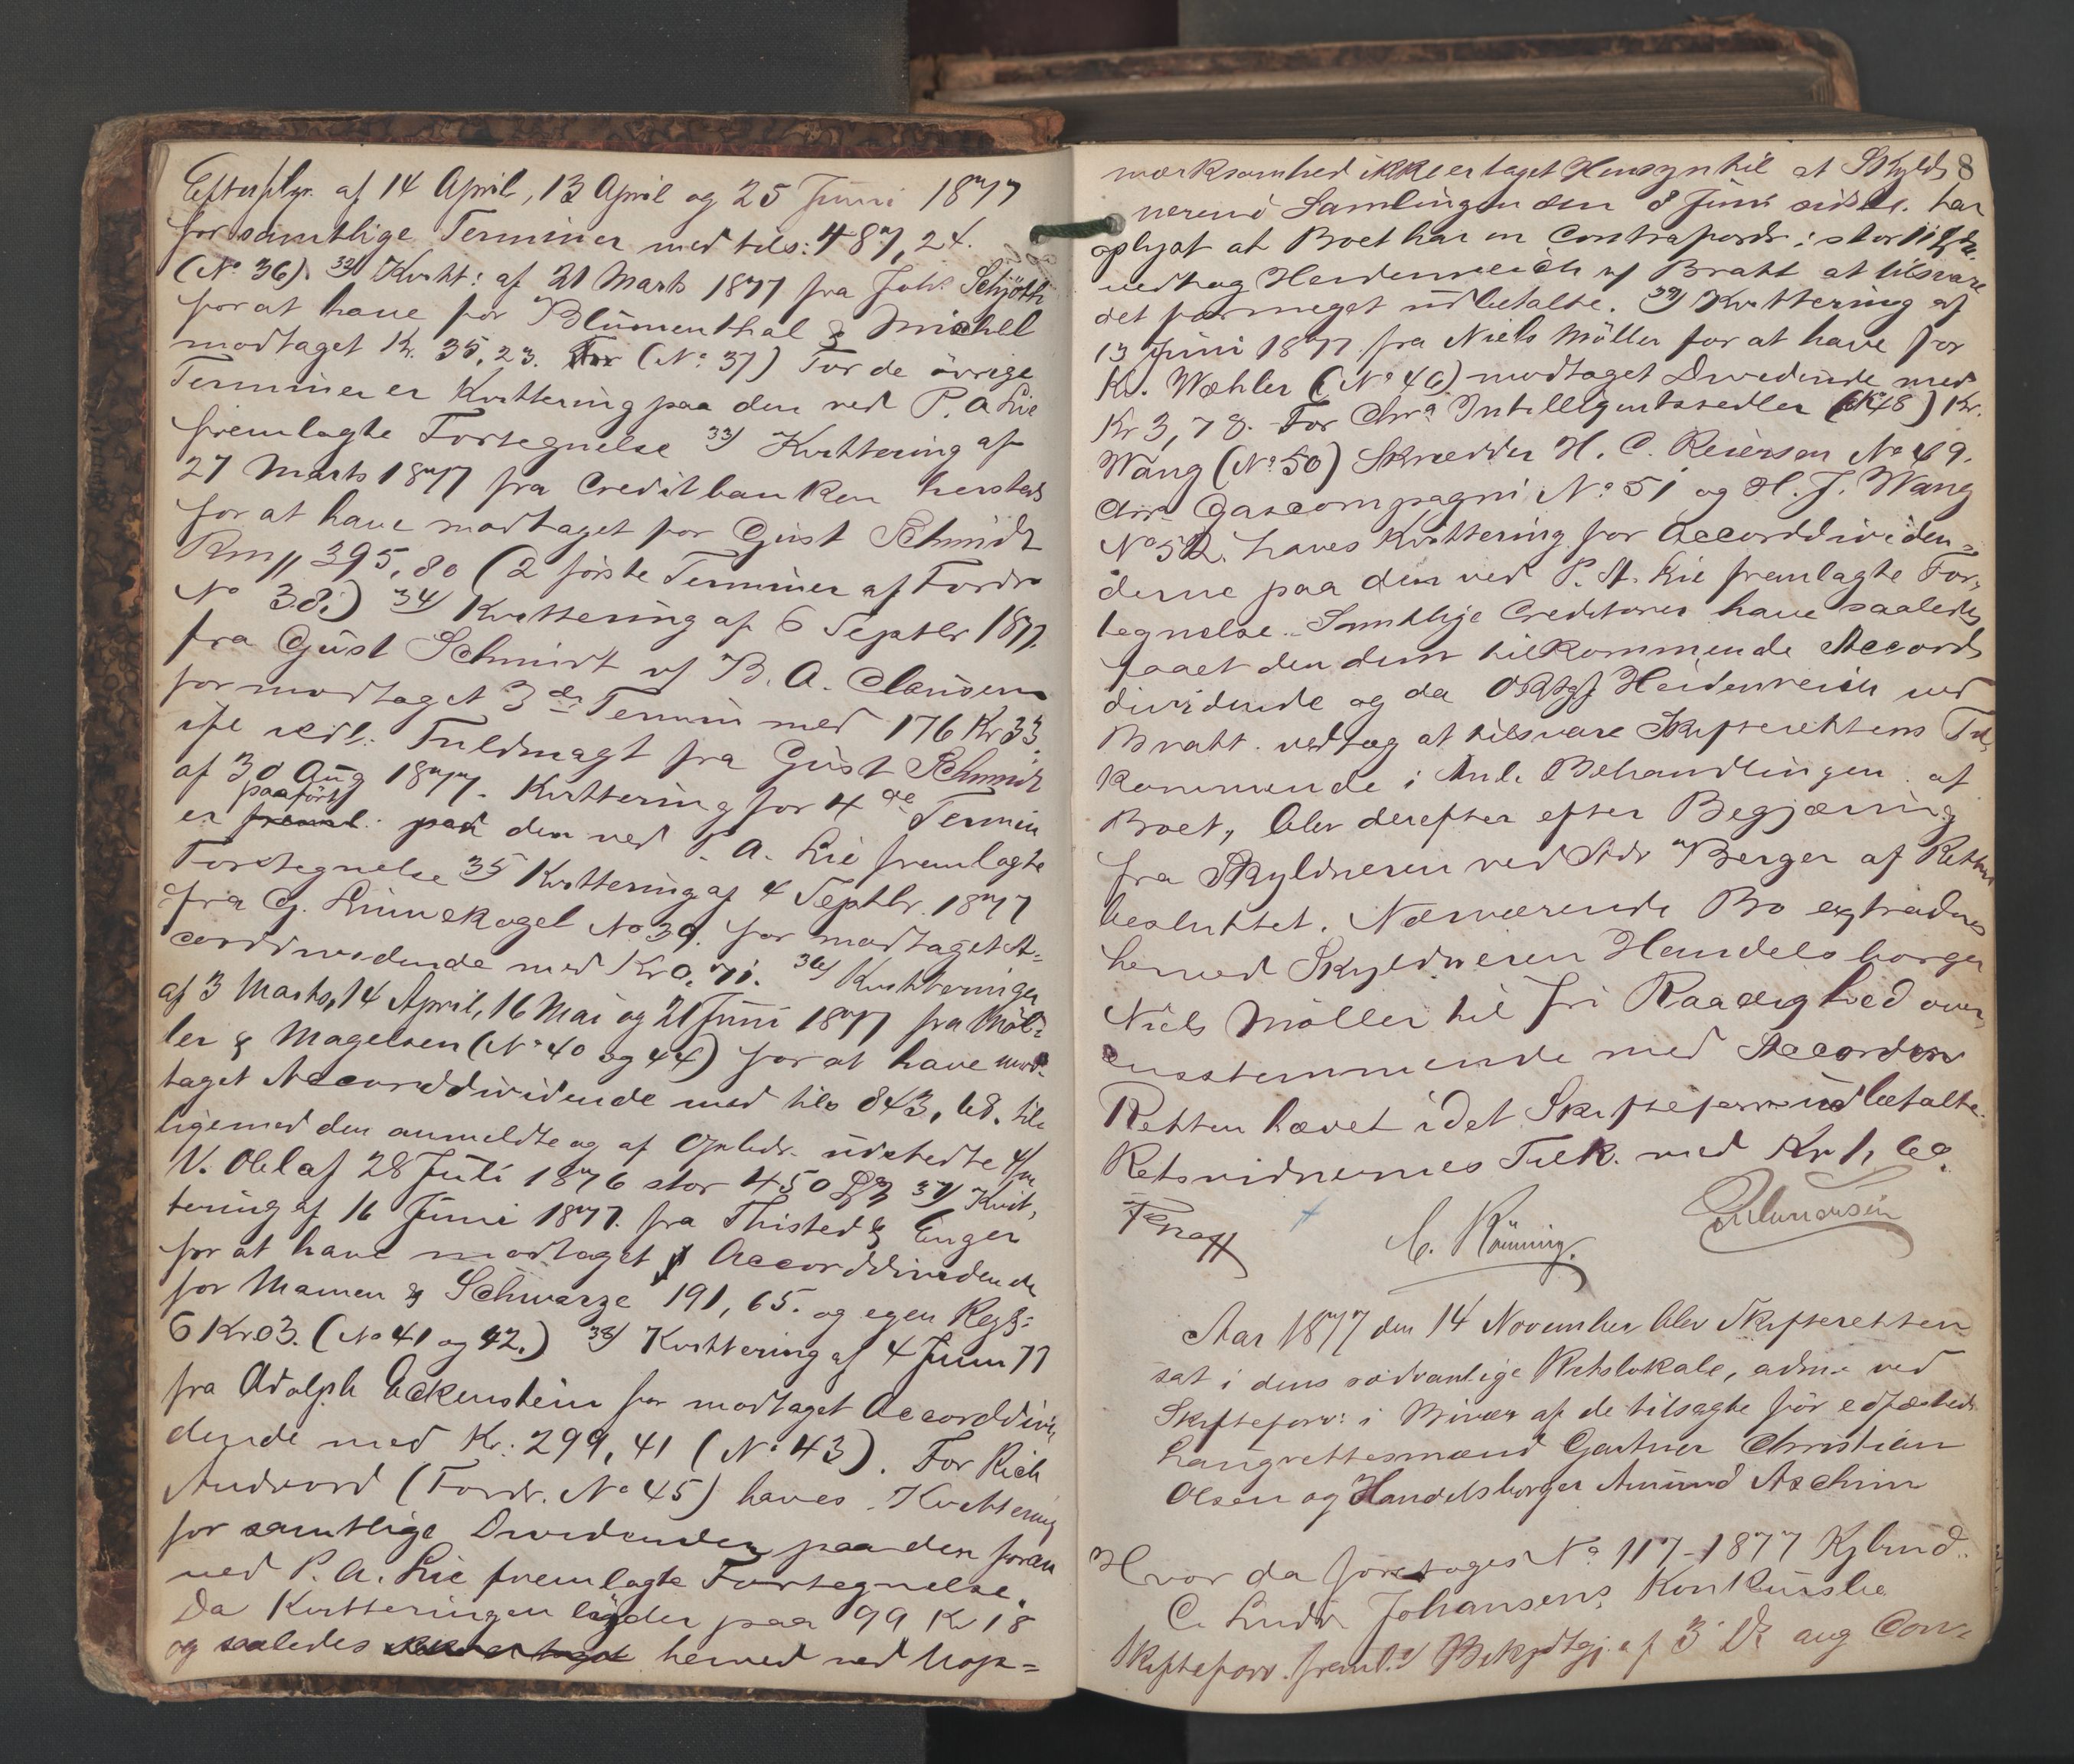 Efterflgr. af 14 April, 13 April og 25 Juni 1877
for samtlige Terminer med tils: 487,24.
(No 36) 32) Kvitt: af 21 Marts 1877 fra Joh. Schjöth
for at have for Blumenthal & Michel
modtaget Kr. 35,23. (No 37) For de övrige
Terminer er Kvittering paa den ved P. A Lie
fremlagte Fortegnelse 33) Kvittering af
27 Marts 1877 fra Creditbanken hersteds
for at have modtaget for Gust Schmidt
Rm 395,80 (2 förste Terminer af Fordr
No 38.) 34) Kvittering af 6 Septbr 1877.
fra Gust Schmidt v/ B. A. Clausen
for modtaget 3die Termin med 176 Kr 33.
ifl vedl: Fuldmagt fra Gust Schmidt
af 30 Aug 1877. Kvittering for 4de Termin
paafört
er freml. paa den ved P. A. Lie fremlagte
Fortegnelse 35) Kvittering af 4 Septbr. 1877
fra G. Linnekogel No 39. for modtaget Ac-
corddividende med Kr 0,71. 36) Kvitteringer
af 3 Marts, 14 April, 16 Mai og 21 Juni 1877 fra Möl-
ler & Magelsen (No 40 og 44) for at have mod-
taget Accorddividende med tils 843,68. til-
ligemed den anmeldte og af Opbdr. udstedte
V. Obl af 28 Juli 1876 stor 450 37) Kvit-
tering af 16 Juni 1877. fra Thisted & Enger
for at have modtaget Accorddividende
for Mamen & Schwarze 191,65. og egen Regg:
6 Kr 03. (No 41 og 42.) 38) Kvittering af 4 Juni 77
fra Adolph Eckenstein for modtaget Accorddivi-
dende med Kr: 299,41 (No 43). For Rich
Andvord (Fordr. No 45) haves Kvittering
for samtlige Dividender paa den foran
ved P. A. Lie fremlagte Fortegnelse.
Da Kvitteringen lyder paa 99 Kr 18
og saaledes herved ved Uop-
mærksomhed ikke er taget Hensyn til at Skyld- 8
neren i Samlingen den 8 Juni sidstl. har
oplyst at Boet har en Contrafordr: stor
vedtog Heidenreich v/ Bratt at tilsvare
det formeget udbetalte. 39) Kvittering af
13 Juni 1877 fra Niels Möller for at have for
Kr. Wæhler (No 46) modtaget Dividende med
Kr 3,78. For Chra Intelligentssedler (No 48) Kr.
Wang (No 50) Skrædder H. C. Reiersen No 49.
Chra Gascompagni No 51 og H. J. Wang
No 52. haves Kvittering for Accorddividen-
derne paa den ved P. A. Lie fremlagte For-
tegnelse. Samtlige Creditorer have saaledes
faaet den dem tilkommende Accord-
dividende og da ORsgf Heidenreich ved
Bratt. vedtog at tilsvare Skifterettens Til-
kommende i Anl. Behandlingen af
Boet, blev derefter efter Begjæring
fra Skyldneren ved Adv Berger af Retten
besluttet. Nærværende Bo extraderes
herved Skyldneren Handelsborger
Niels Möller til fri Raadighed over-
ensstemmende med Accorden
Retten hævet idet Skifteforv udbetalte.
Retsvidnernes Tilk. med Kr 1,60.
C. Rönning.
Aar 1877 den 14 November blev Skifteretten
sat i dens sædvanlige Retslokale, adm. ved
Skifteforv: i Bivær af de tilsagte för edfæstede
Laugrettesmænd Gartner Christian
Olsen og Handelsborger Amund Aschim
Hvor da foretoges No 117-1877 Kjbmd..
C. Ludv Johansens Konkursbo
Skifteforv. freml. Bekjdtgj. af 3 Ds ang Con-